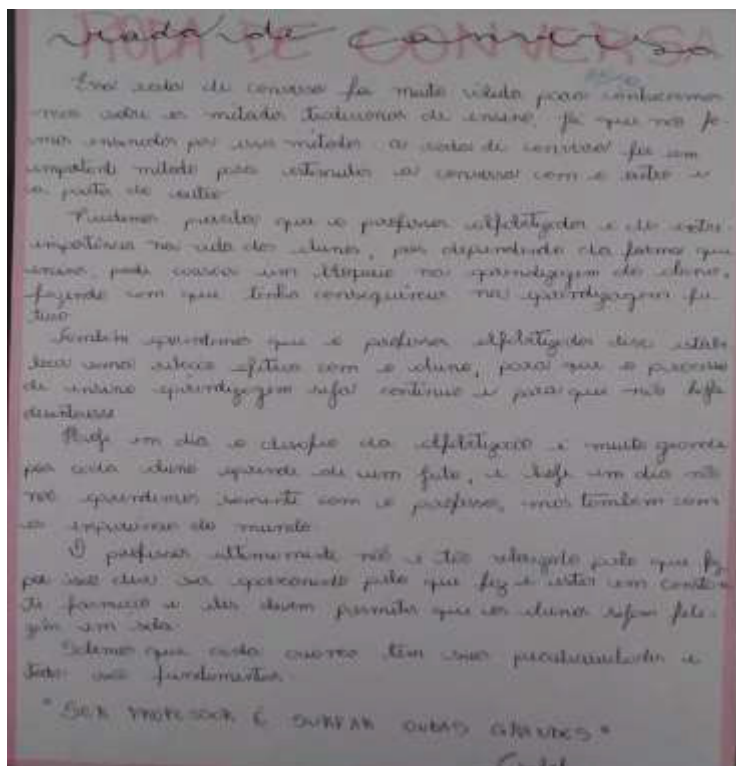 RODA DE CONVERSA
roda de conversa
Essa roda de conversa foi muito válida para conhecermos
mais sobre os métodos tradicionais de ensino, já que nós fo-
mos ensinados por esses métodos. a roda de conversa foi um
importante método para estimular a conversa com o outro e
a partir do outro
Pudemos perceber que o professor alfabetizador é de extre
importância na vida dos alunos, pois dependendo da forma que
ensina, pode causar um bloqueio na aprendizagem do aluno,
fazendo com que tenha consequências na aprendizagem fu
tura
Também aprendemos que o professor alfabetizador deve estabe
lecer uma relação afetiva com o aluno, para que o processo
de ensino aprendizagem seja contínuo e para que não haja
desinteresse
Hoje em dia o desafio da alfabetização é muito grande
pois cada aluno aprende de um jeito, e hoje em dia não
nós aprendemos somente com o professor, mas também com
as experiências do mundo
O professor ultimamente não é tão por isso deve ser apaixonado pelo que faz e estar em constan
te formação e eles devem permitir que os alunos sejam
em sala.
Sabemos que cada criança têm suas peculiaridades e
todas são fundamentais.
"SER PROFESSOR É SURFAR ONDAS GRANDES"